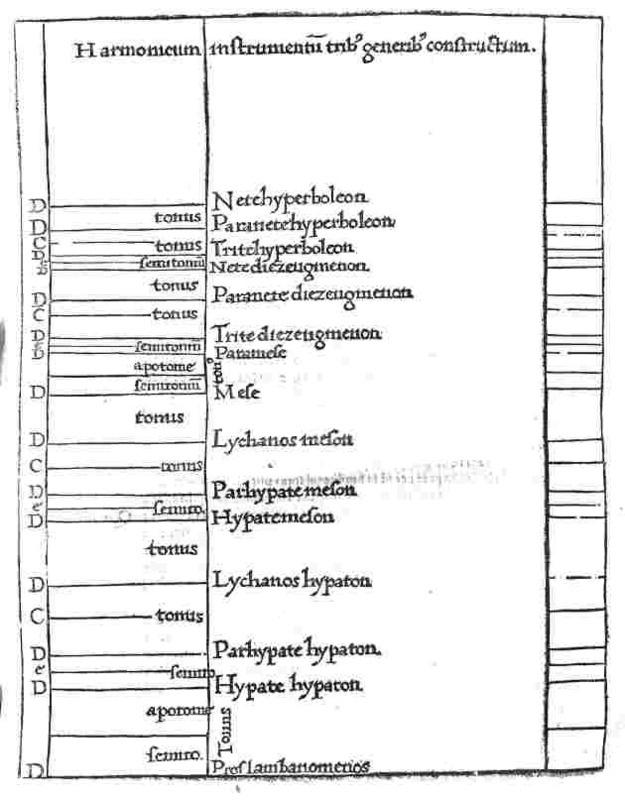 Harmonicum instrumentū tribꝰ generibꝰ constructum.
D Netehyperboleon
tonus
D Paranetehyperboleon
C tonus Tritehyperboleon
D
e semitoniū Netediezeugmenon
D
tonus
D Paranete diezeugmenon
C tonus
D Trite diezeugmenon
e semitoniū
D Paramese
apotome
semitoniū
D Mese
tonus
D Lychanos meson
C tonus
D Parhypate meson
e semito.
D Hypatemeson
tonus
D Lychanos hypaton
C tonus
D Parhypate hypaton.
e semito
D Hypate hypaton
apotome
Tonus
semito.
D Proslambanomenos